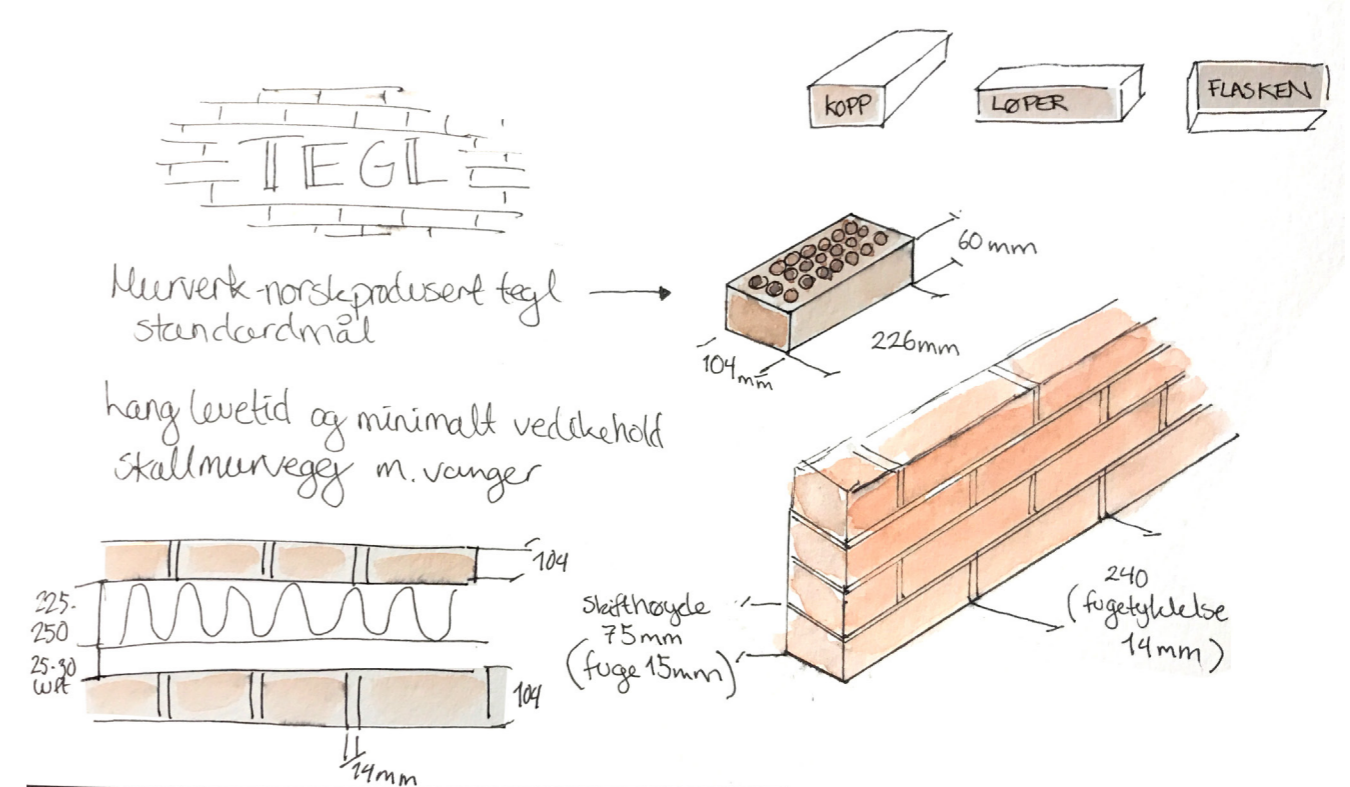 KOPP
LØPER
FLASKEN
TEGL
Murverk-norskprodusert tegl
standardmål
60mm
226mm
104mm
Lang levetid og minimalt vedlikehold
skallmurvegg m. vanger
104
225-
250
25-30
104
14mm
Skifthøyde
75mm
(fuge 15mm)
240
(fugetykkelse
14mm)